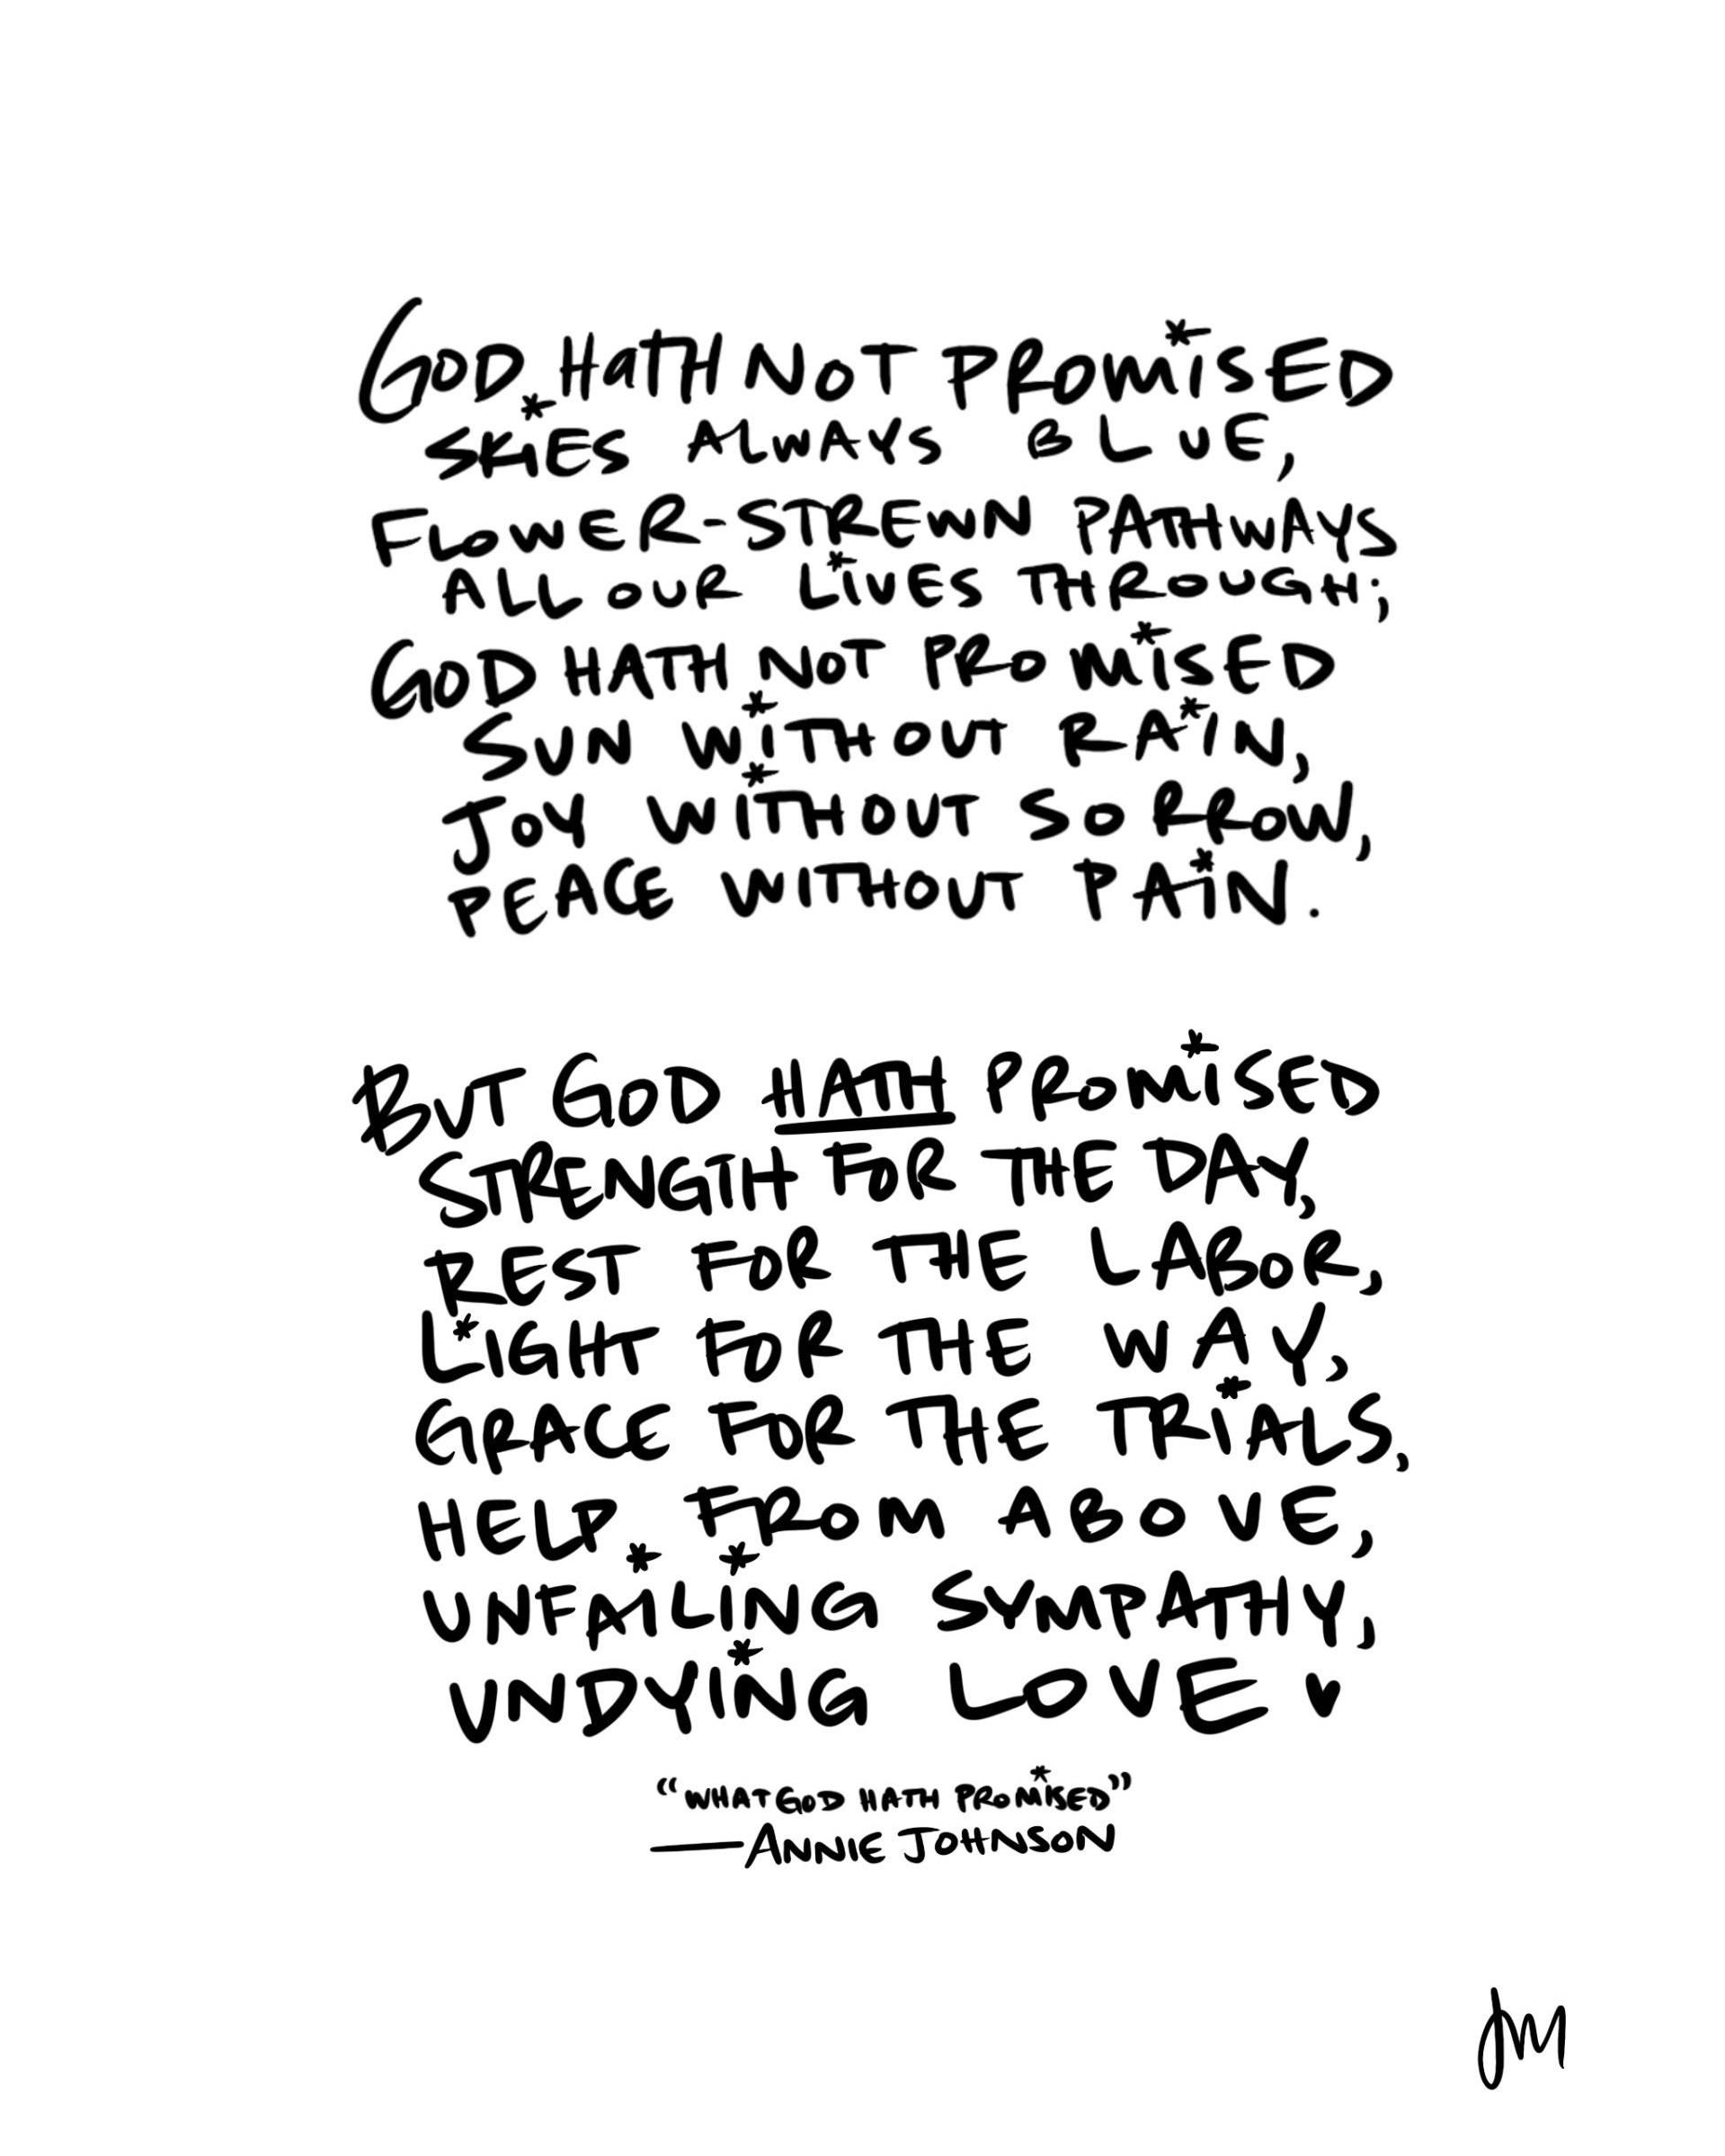 GOD HaTH NOT PROMiSED
SKiES ALWAYS BLUE,
FLOWER-STREWN PATHWAYS
ALL OUR LiVES THROUGH;
GOD HATH NOT PROMiSED
SUN WiTHOUT RAiN,
JOY WiTHOUT SORROW,
PEACE WITHOUT PAiN.
BUT GOD HATH PROMiSED
STRENGTH FOR THE DAY,
REST FOR THE LABOR,
LiGHT FOR THE WAY,
GRACE FOR THE TRiALS,
HELP FROM ABOVE,
UNFAiLiNG SYMPATHY,
UNDYiNG LOVE ♥
“WHAT GOD HATH PROMiSED”
—ANNIE JOHNSON
JM